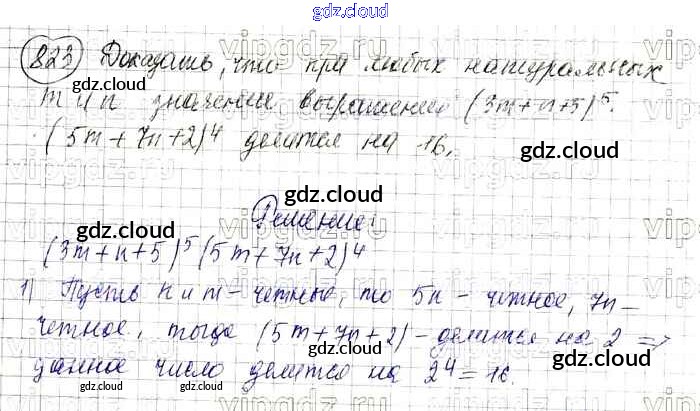 gdz.cloud
823 Доказать, что при любых натуральных
gdz.cloud
m и n значение выражения (3m+n+5)⁵·
gdz.cloud
·(5m+7n+2)⁴ делится на 16.
gdz.cloud
gdz.cloud Решение: gdz.cloud
(3m+n+5)⁵(5m+7n+2)⁴
gdz.cloud
1) Пусть n и m - четные, то 5n - четное, 7n -
четное, тогда (5m+7n+2) - делится на 2 =>
gdz.cloud gdz.cloud
данное число делится на 2⁴ = 16.
gdz.cloud gdz.cloud gdz.cloud